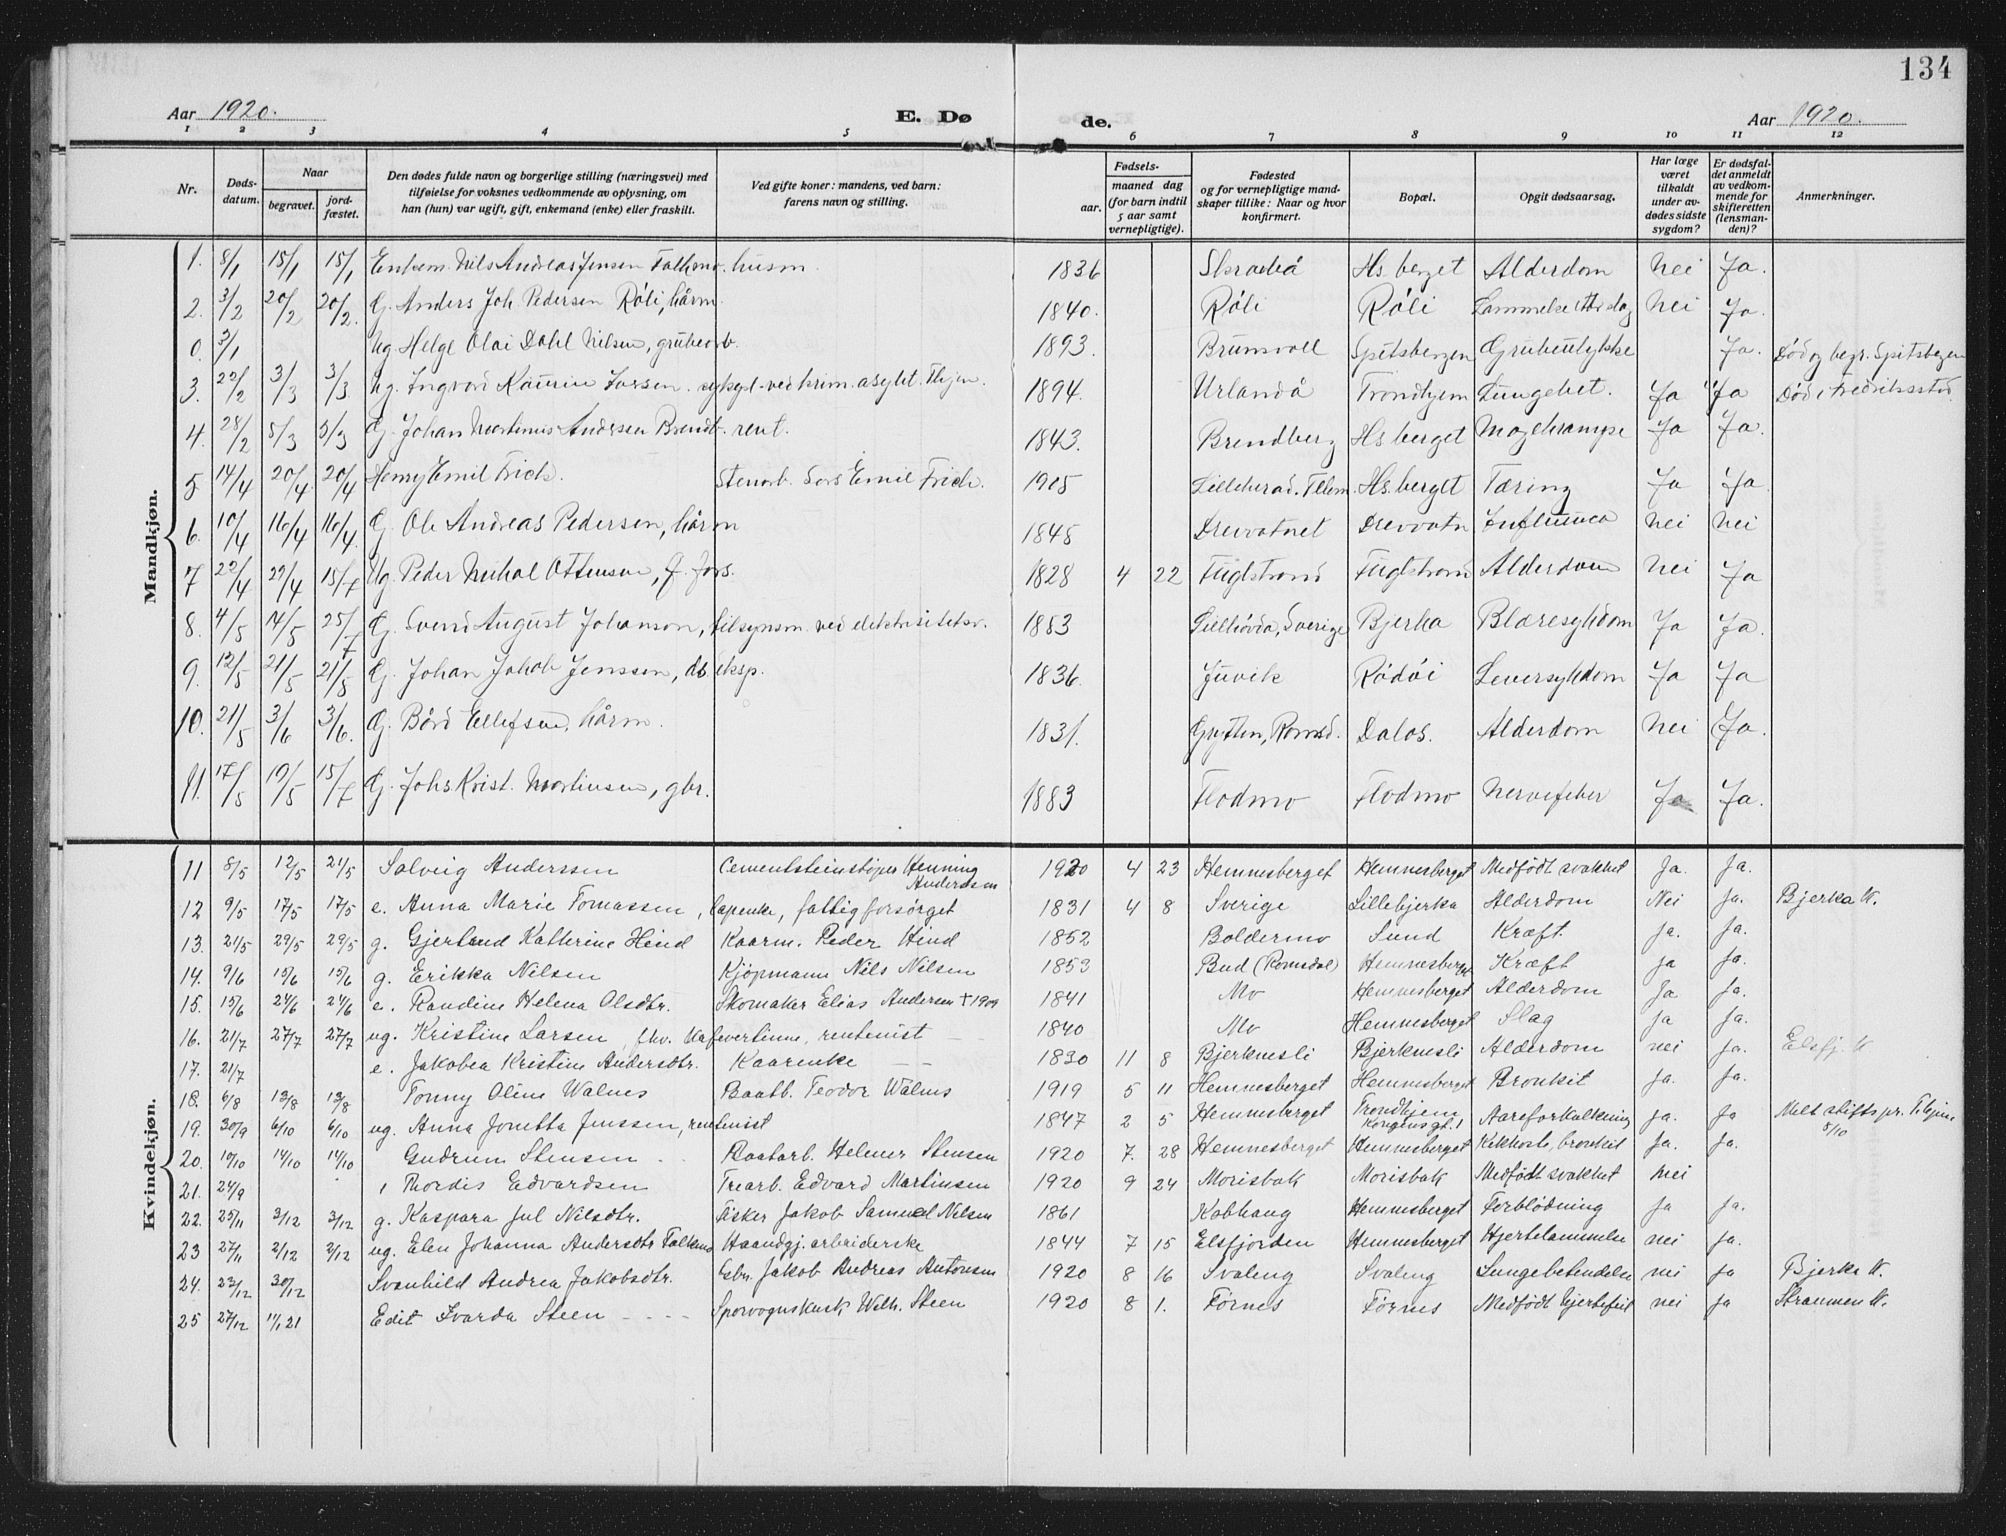 134
Aar 1920. E. Dø de. Aar 1920.
1 2 3 4 5 6 7 8 9 10 11 12
Nr. Døds-datum. Naar begravet. jord-fæstet. Den dødes fulde navn og borgerlige stilling (næringsvei) med tilføielse for voksnes vedkommende av oplysning, om han (hun) var ugift, gift, enkemand (enke) eller fraskilt. Ved gifte koner: mandens, ved barn: farens navn og stilling. Fødsels- aar. maaned dag (for barn indtil 5 aar samt vernepligtige). Fødested og for vernepligtige mand-skaper tillike: Naar og hvor konfirmert. Bopæl. Opgit dødsaarsag. Har læge været tilkaldt under av-dødes sidste sygdom? Er dødsfal-det anmeldt av vedkom-mende for skifteretten (lensman-den)? Anmerkninger.
Mandkjøn.
1. 8/1 15/1 15/1 Enkem. Nils Andreas Jensen husm. 1836 Hs berget Alderdom Nei Ja.
2. 3/2 20/2 20/2. G. Anders Joh. Pedersen Røli, kårm. 1840. Røli Røli Nei Ja.
0. 3/1 Ug Helge Olai Dahl Nilsen, grubearb. 1893. Brunvoll Spitsbergen Grubeulykke Ja. Død og begr. Spitsbergen
3. 22/2 3/3 3/3. Ug. Ingvard Kaurin Larsen. sykepl. ved krim. asylet. Thjem. 1894. Urlandå Trondhjem Lungebet. Ja Ja Død i Fredriksstad.
4. 28/2 5/3 5/3 G. Johan Martinus Andersen Brendt. rent. 1843. Brendberg Hs berget Magekrampe Ja Ja.
5 14/4 20/4 20/4 Henry Emil Frich. Stenarb. Lars Emil Frich. 1905 Lilleherad. Telem. Hs. berget Tæring Ja Ja.
6. 10/4 16/4 16/4. G. Ole Andreas Pedersen, kårm 1845 Drevvatnet Drevvatn Influenca Nei Nei
7 22/4 29/4 15/7 Ug. Peder Mikal Ottensen, f. fors. 1828 4 22 Fuglstrand Fuglstrand Alderdom Nei Ja
8. 4/5 14/5 25/7 G. Svend August Johanson, tilsynsm. ved elektrisitetsv. 1853 Lillhärda, Sverige Bjerka Blæresykdom Ja Ja.
9. 12/5 21/5 21/5 G. Johan Jakob Jenssen, ds eksp. 1836. Juvik Rødøi Leversykdom Ja Ja
10. 21/5 3/6 3/6. G. Bård Ellefsen, kårm. 1831. Grytten, Romsd. Dalos. Alderdom Nei Ja.
11. 17/5 19/5 15/7 G. Johs Krist. Martinsen, gbr. 1883 Flodmo Flodmo Nervefeber Ja Ja.
Kvindekjøn.
11 8/5 12/5 21/5 Solveig Anderssen Cementsteinstøper Henning Anderssen 1920 4 23 Hemnesberget Hemnesberget Medfødt svakhet Ja. Ja.
12 9/5 17/5 17/5 e. Anna Marie Tomassen, lapenke, fattigforsørget 1831 4 8 Sverige Lillebjerka Alderdom Nei Ja. Bjerka K.
13. 21/5 29/5 29/5 g. Gjerlaud Kathrine Hind Kaarm. Peder Hind 1852 Boldermo Sund Kræft. ja. ja.
14. 9/6 15/6 15/6 g. Erikka Nilsen Kjøpmann Nils Nilsen 1853 Bud (Romsdal) Hemnesberget Kræft ja ja.
15. 15/6 24/6 24/6 e. Randine Helena Olsdtr. Skomaker Elias Andersen † 1909 1841 Mo Hemnesberget Alderdom Ja Ja.
16. 21/7 27/7 27/7 ug. Kristine Larsen, fhv. kafevertinne, rentenist 1840 Mo Hemnesberget Slag ja ja.
17. 21/7 e. Jakobea Kristine Andersdtr. Kaarenke 1830 11 8 Bjerknesli Bjerknesli Alderdom nei ja. Elsfj. K
18. 6/8 13/8 13/8 Tonny Oline Walnes Baatb. Teodor Walnes 1919 5 11 Hemnesberget Hemnesberget Bronkit ja. ja.
19. 30/9 6/10 6/10 ug. Anna Jonetta Jenssen, rentenist 1847 2 5 Hemnesberget Trondhjem Kongensgt. 1 Aareforkalkning ja. Ja Melt stiftspr. T.hjem 8/10
20. 10/10 14/10 14/10 Gudrun Stensen Baatarb. Helmer Stensen 1920 7. 28 Hemnesberget Hemnesberget Kikhoste, bronkit Ja. Ja.
21. 24/9 Thordis Edvardsen Trearb. Edvard Martinsen 1920 9 24 Morisbak Morisbak Medfødt svakhet nei
22. 25/11 3/12 3/12 g. Kaspara Jul Nilsdtr. Fisker Jakob Samuel Nilsen 1861 Kobhaug Hemnesberget Forblødning ja ja.
23 27/11 2/12 2/12 ug. Elen Johanna Andersdtr Falkmo Haandgj. arbeiderske 1844 7 15 Elsfjorden Hemnesberget Hjertelammelse nei ja.
24. 23/12 30/12 Svanhild Andrea Jakobsdtr. Gbr. Jakob Andreas Antonsen 1920 8 16 Svaleng Svaleng Lungebetendelse nei ja Bjerka K.
25 27/12 11/1 21 Edit Ivarda Steen Sporvognskusk Wilh. Steen 1920 8 1. Førnes Førnes Medfødt hjertefeil nei ja Straumen K.